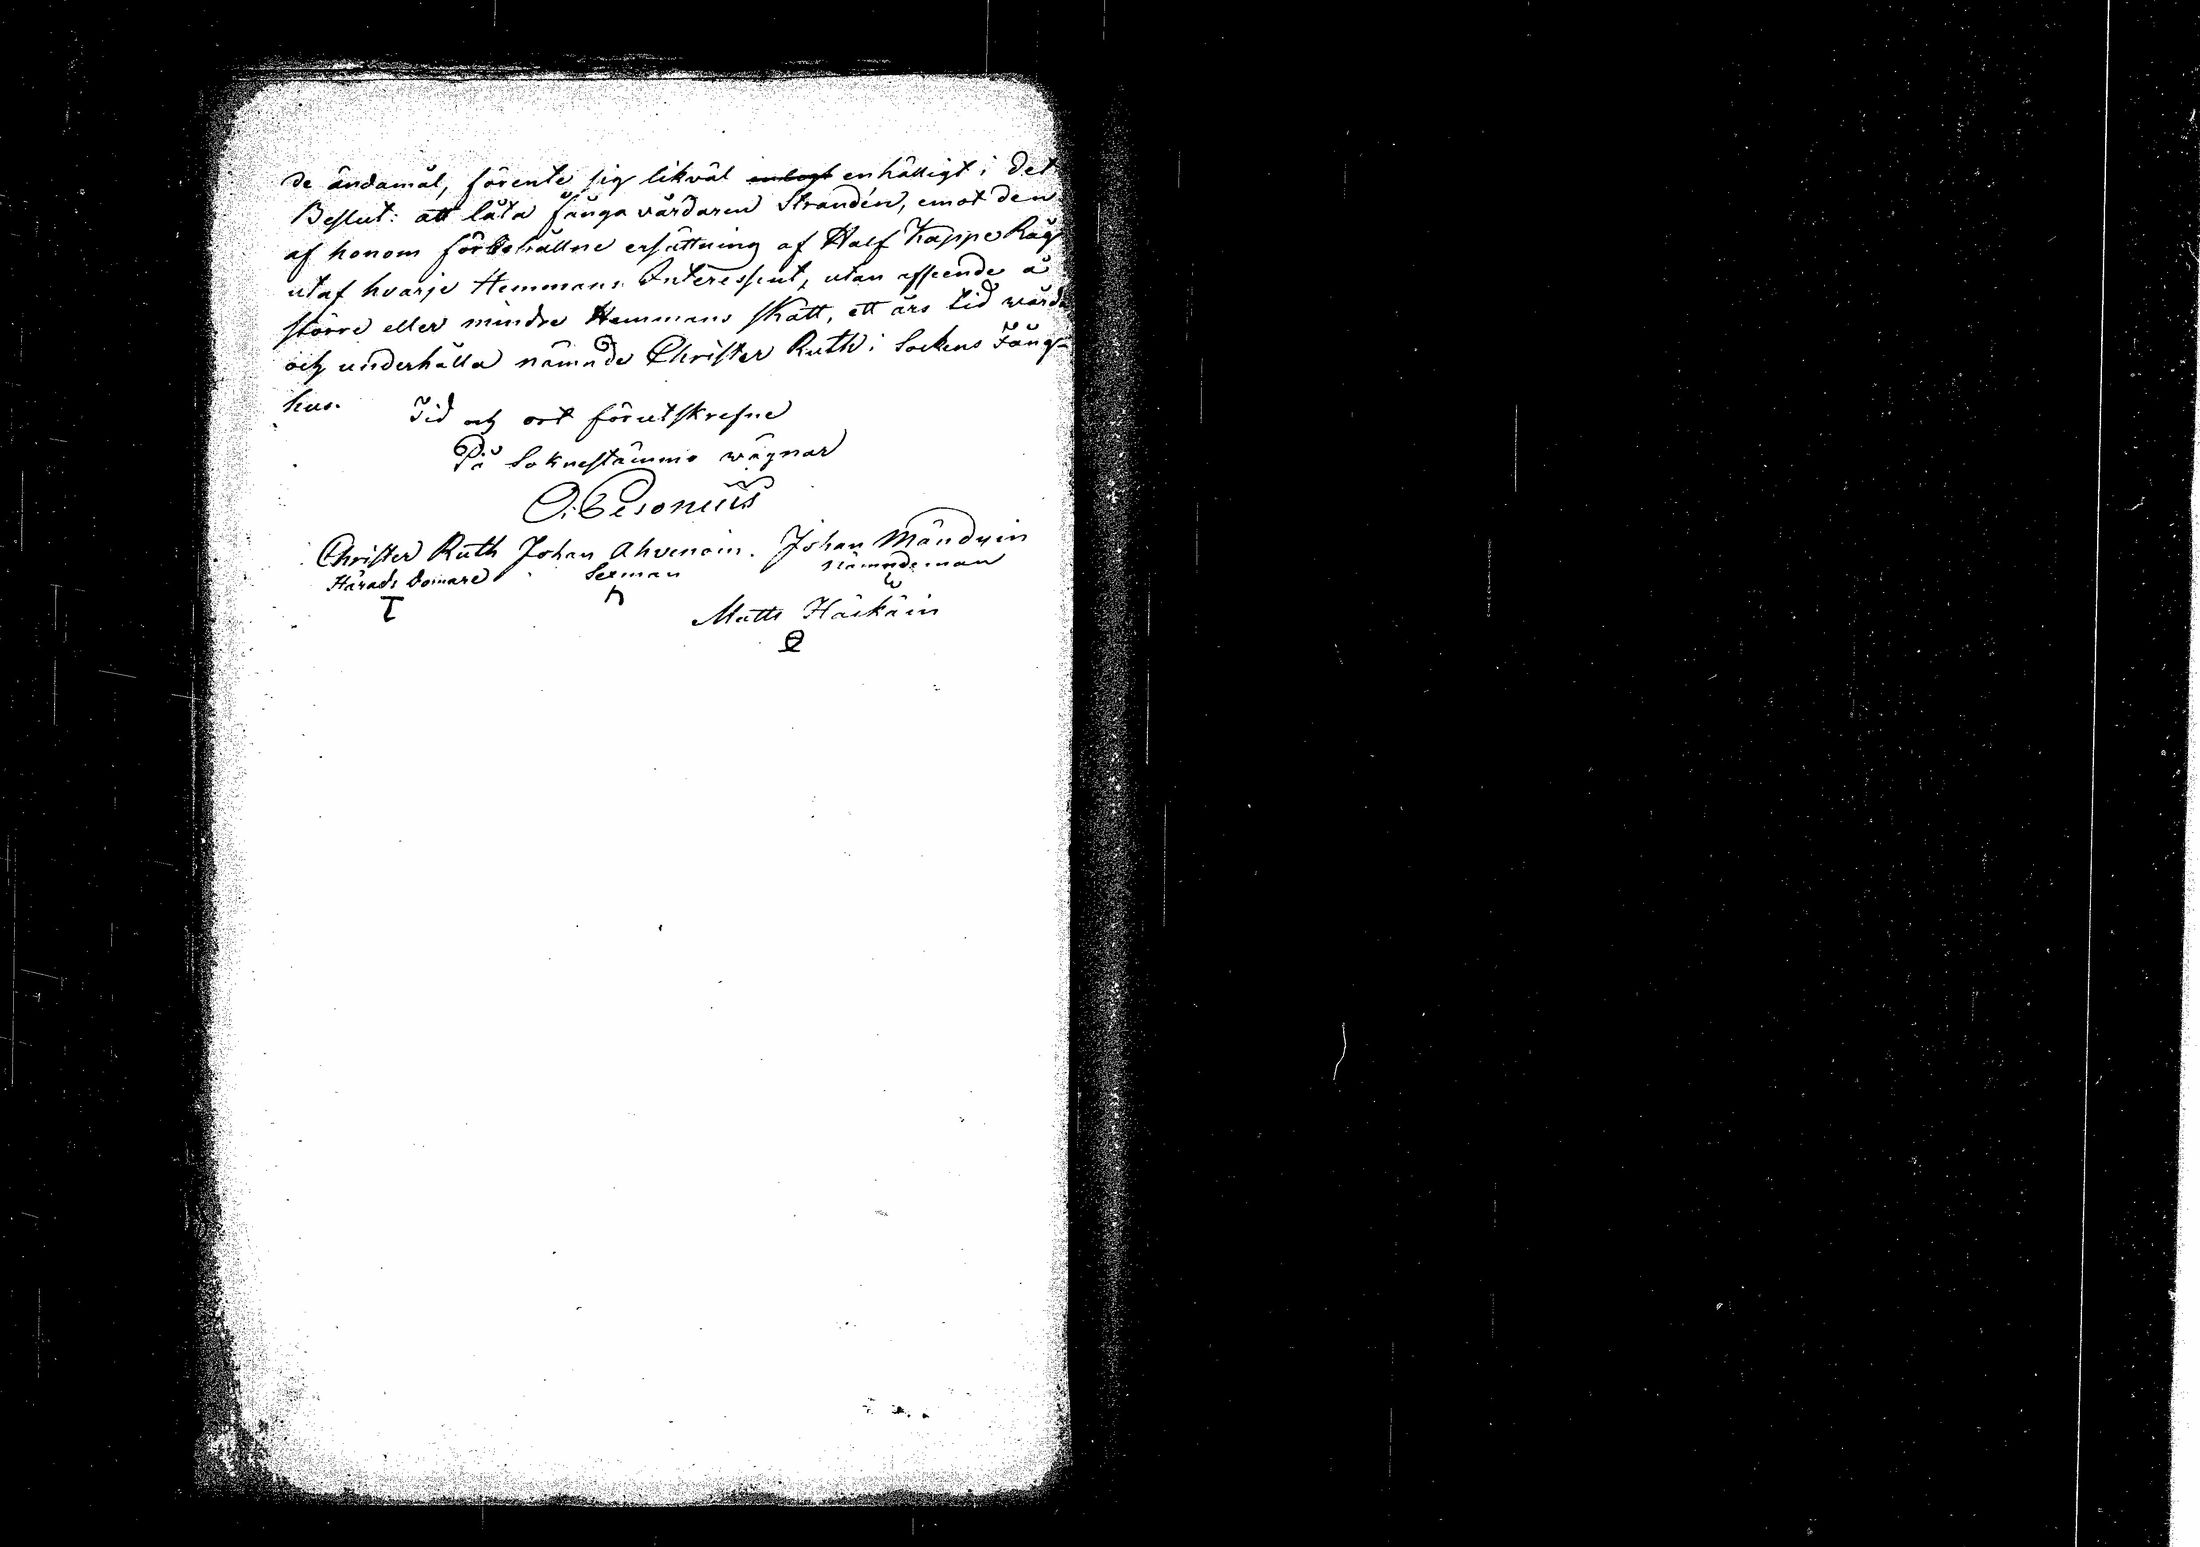 de ändamål, förente sig likväl enhälligt i det
Beslut: att låta fånga vårdaren Strandén, emot den
af honom förbehållne ersättning af Half Kappe Råg
utaf hvarje Hemmans Interessent, utan afseende å
större eller mindre Hemmans skatt, ett års tid wårda
och underhålla nämnde Christer Ruth i Sockens Fång-
hus. Tid och ort förutskrefne
På Soknestämmo wägnar
O. Pesonius
Christer Ruth Johan Ahvenain. Johan Mändyin
Härads Domare Sexman Nämndeman
Matts Häikäin